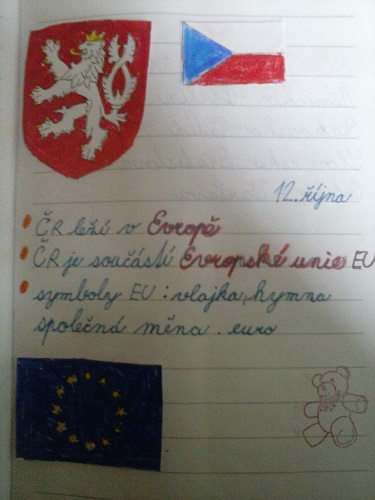 12. října
ČR leží v Evropě
ČR je součástí Evropské unie EU
symboly EU : vlajka, hymna
společná měna . euro